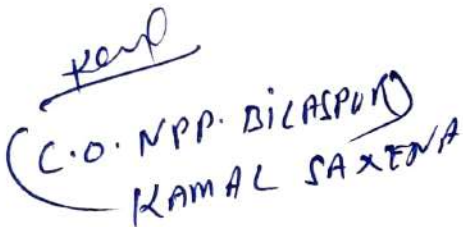 (C.O. NPP. BILASPUR)
KAMAL SAXENA